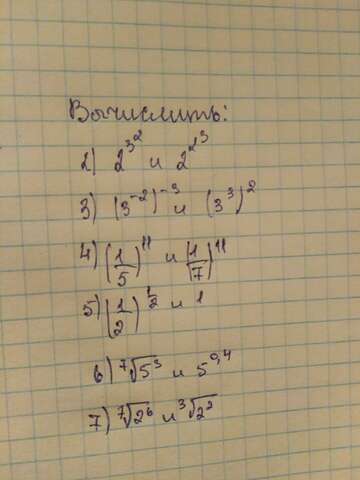 Вычислить:
2) 2^{3^2} и 2^{2^3}
3) (3^{-2})^{-3} и (3^3)^2
4) (1/5)^{11} и (1/7)^{11}
5) (1/2)^{1/2} и 1
6) ⁷√5³ и 5^{0,4}
7) ⁷√2⁶ и ³√2²